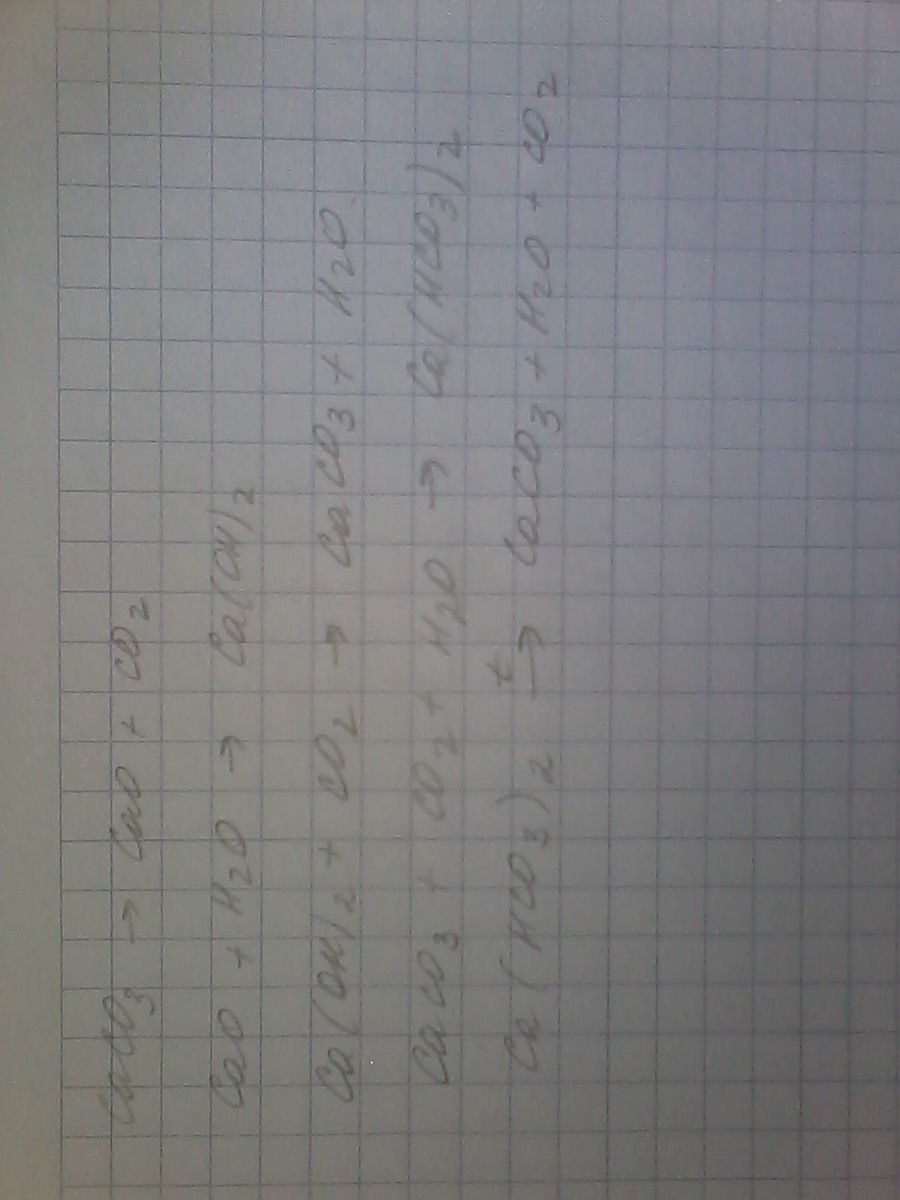 CaCO3 → CaO + CO2
CaO + H2O → Ca(OH)2
Ca(OH)2 + CO2 → CaCO3 + H2O
CaCO3 + CO2 + H2O → Ca(HCO3)2
Ca(HCO3)2 t→ CaCO3 + H2O + CO2